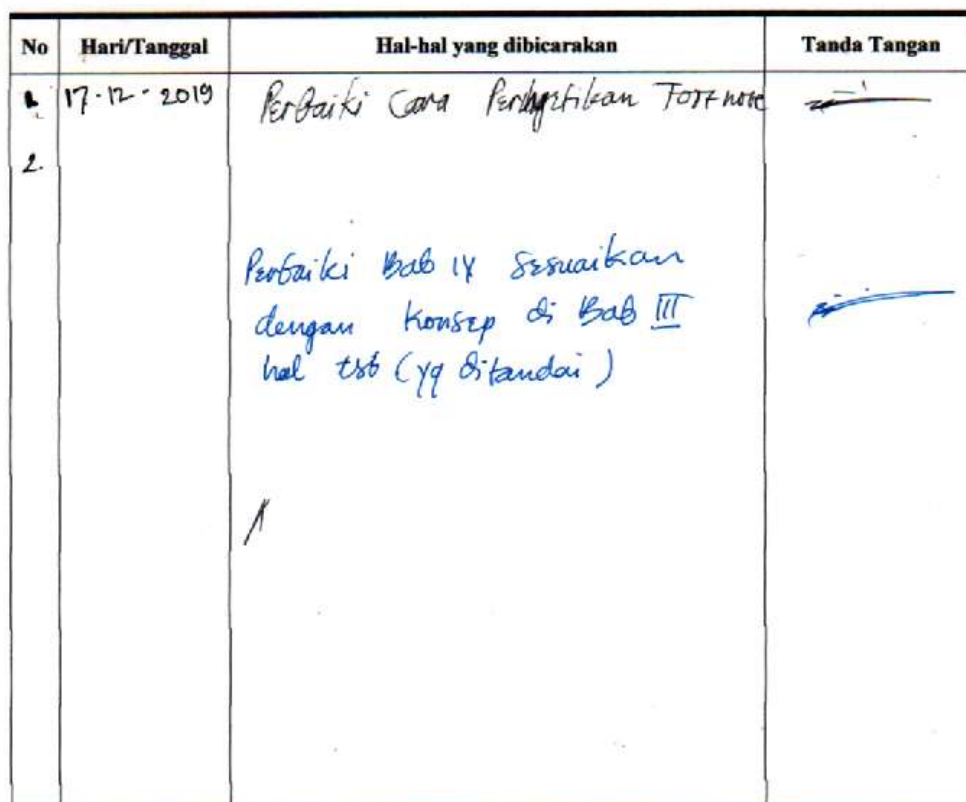 No Hari/Tanggal Hal-hal yang dibicarakan Tanda Tangan
1. 17-12-2019 Perbaiki Cara Pengetikan Footnote
2.
Perbaiki Bab IV Sesuaikan
dengan Konsep di Bab III
hal tsb (yg ditandai)